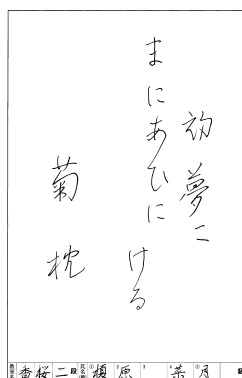 初夢に
まにあひに
ける
菊枕
香桜 二段 原 菜月 級